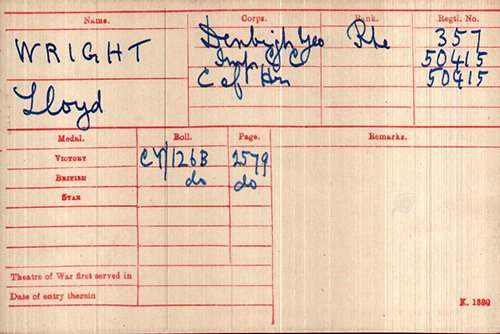 Name. Corps. Rank. Regtl. No.
WRIGHT Denbigh Yeo Pte 357
Imp C C 50415
Lloyd C of Hrs 50415
Medal. Roll. Page. Remarks.
VICTORY CY/126B 2579
BRITISH do do
STAR
Theatre of War first served in
Date of entry therein
K. 1380